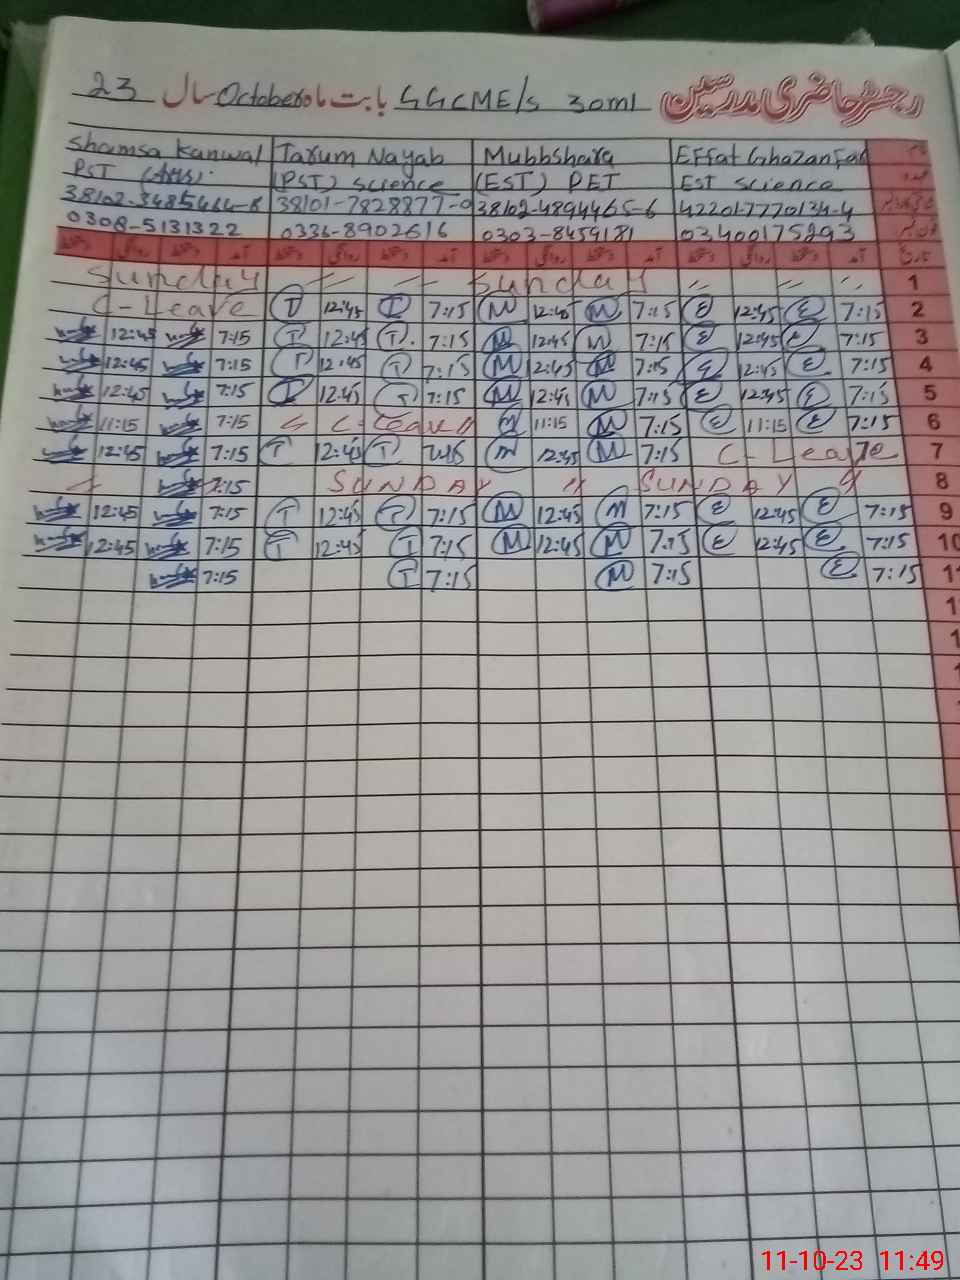 23 سال October بابت ماہ GGCME/s 30ml رجسٹر حاضری مدرسین
Shamsa Kanwal Tarum Nayab Mubbshara Effat Ghazanfar نام
PST (Arts). (PST) Science (EST) PET EST Science عہدہ
38102-3485464-8 38101-7828877-0 38102-4894465-6 42201-7770134-4
0308-5131322 0336-8902616 0303-8459181 03400175293
دستخط روانگی دستخط آمد دستخط روانگی دستخط آمد دستخط روانگی دستخط آمد دستخط روانگی دستخط آمد تاریخ
Sunday 〃 〃 Sunday 〃 〃 〃 1
C-Leave T 12:45 T 7:15 M 12:45 M 7:15 E 12:45 E 7:15 2
12:45 7:15 T 12:45 T. 7:15 M 12:45 M 7:15 E 12:45 E 7:15 3
12:45 7:15 T 12:45 T 7:15 M 12:45 M 7:15 E 12:45 E 7:15 4
12:45 7:15 T 12:45 T 7:15 M 12:45 M 7:15 E 12:45 E 7:15 5
11:15 7:15 〃 C-Leave 〃 M 11:15 M 7:15 E 11:15 E 7:15 6
12:45 7:15 T 12:45 T 7:15 M 12:45 M 7:15 C-Leave 7
〃 7:15 SUNDAY 〃 SUNDAY 〃 8
12:45 7:15 T 12:45 T 7:15 M 12:45 M 7:15 E 12:45 E 7:15 9
12:45 7:15 T 12:45 T 7:15 M 12:45 M 7:15 E 12:45 E 7:15 10
7:15 T 7:15 M 7:15 E 7:15 11
11-10-23 11:49